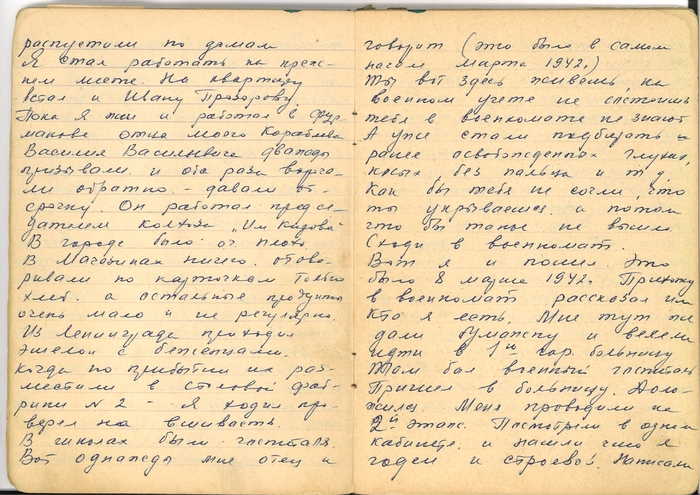 распустили по домам
Я стал работать на преж-
нем месте. На квартиру
встал к Ивану Прозорову.
Пока я жил и работал в Фур
манове отца моего Кораблева
Василия Васильевича дважды
призывали и оба раза возвра-
ли обратно - давали от-
срочку. Он работал предсе-
дателем колхоза "Им Кирова"
В городе было оч. плохо
В Магазинах ничего. отова-
ривали по карточкам только
хлеб. а остальные продукты
очень мало и не регулярно.
Из Ленинграда приходил
эшелон с беженцами.
когда по прибытии их раз-
местили в столовой фаб-
рики № 2 - я ходил про-
верял на вшивость.
В школах были госпиталя.
Вот однажды мне отец и
говорит (это было в самом
начале марта 1942.)
Ты вот здесь живешь, на
военном учете не состоишь
тебя в военкомате не знают
А уже стали подбирать и
ранее освобожденных глухих,
косых, без пальца и т. д.
Как бы тебя не сочли, что
ты укрываешься. а потом
что бы такое не вышло.
Сходи в военкомат.
Вот я и пошел Это
было 8 марта 1942г Прихожу
в военкомат рассказал им
Кто я есть. Мне тут же
дали бумажку и велели
идти в 1ю гор. больницу
Там был военный госпиталь
Пришел в больницу. Доло-
жился. Меня проводили на
2й этаж. Посмотрели в одном
кабинете. и нашли что я
годен и строевой. Написали